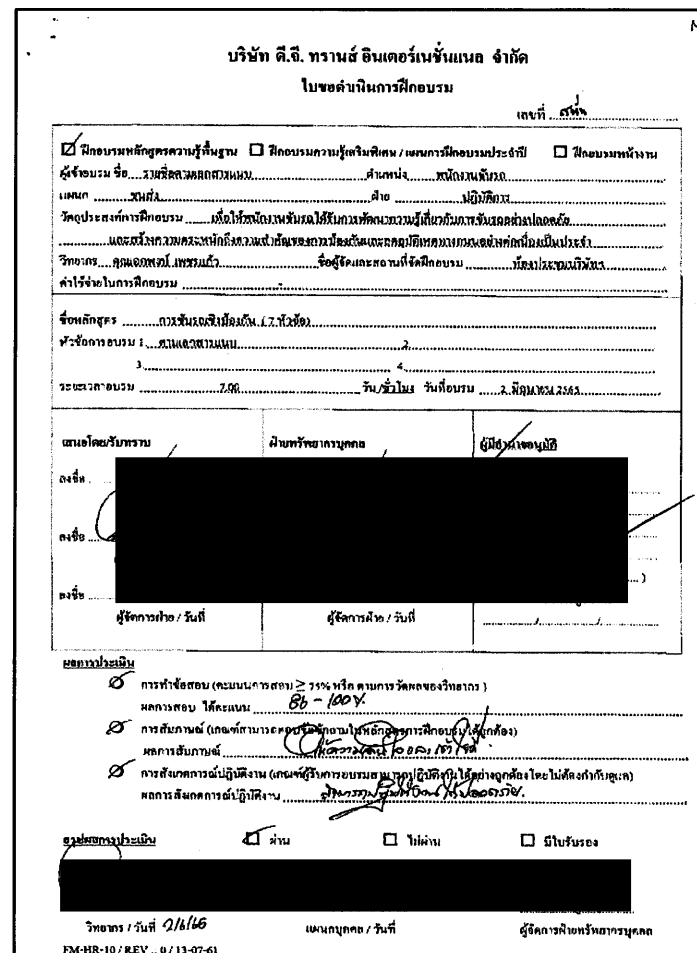 บริษัท ดี.จี. ทรานส์ อินเตอร์เนชั่นแนล จำกัด
ใบขอดำเนินการฝึกอบรม
เลขที่
ฝึกอบรมหลักสูตรความรู้พื้นฐาน ฝึกอบรมความรู้เสริมพิเศษ / แผนการฝึกอบรมประจำปี ฝึกอบรมหน้างาน
ผู้เข้าอบรม ชื่อ รายชื่อตามเอกสารแนบ ตำแหน่ง พนักงานขับรถ
แผนก ขนส่ง ฝ่าย ปฏิบัติการ
วัตถุประสงค์การฝึกอบรม เพื่อให้พนักงานขับรถได้รับการพัฒนาความรู้เกี่ยวกับการขับรถอย่างปลอดภัย
และสร้างความตระหนักถึงความสำคัญของการป้องกันและลดอุบัติเหตุทางถนนอย่างต่อเนื่องเป็นประจำ
วิทยากร คุณเอกพงษ์ เพชรแก้ว ชื่อผู้จัดและสถานที่จัดฝึกอบรม ห้องประชุมบริษัทฯ
ค่าใช้จ่ายในการฝึกอบรม -
ชื่อหลักสูตร การขับรถเชิงป้องกัน ( 7 หัวข้อ)
หัวข้อการอบรม 1. ตามเอกสารแนบ 2.
3. 4.
ระยะเวลาอบรม 7.00 วัน /ชั่วโมง วันที่อบรม 2 มิถุนายน 2565
เสนอโดย/รับทราบ ฝ่ายทรัพยากรบุคคล ผู้มีอำนาจอนุมัติ
ลงชื่อ
ลงชื่อ
)
ลงชื่อ
ผู้จัดการฝ่าย / วันที่ ผู้จัดการฝ่าย / วันที่ / /
ผลการประเมิน
การทำข้อสอบ (คะแนนการสอบ ≥ 75% หรือ ตามการวัดผลของวิทยากร )
ผลการสอบ ได้คะแนน 86 - 100%
การสัมภาษณ์ (เกณฑ์สามารถตอบข้อซักถามในหลักสูตรการฝึกอบรมได้ถูกต้อง)
ผลการสัมภาษณ์
การสังเกตการณ์ปฏิบัติงาน (เกณฑ์ผู้รับการอบรมสามารถปฏิบัติงานได้อย่างถูกต้องโดยไม่ต้องกำกับดูแล)
ผลการสังเกตการณ์ปฏิบัติงาน
สรุปผลการประเมิน ผ่าน ไม่ผ่าน มีใบรับรอง
วิทยากร / วันที่ 2/6/65 แผนกบุคคล / วันที่ ผู้จัดการฝ่ายทรัพยากรบุคคล
FM-HR-10 / REV .. 0 / 13-07-61